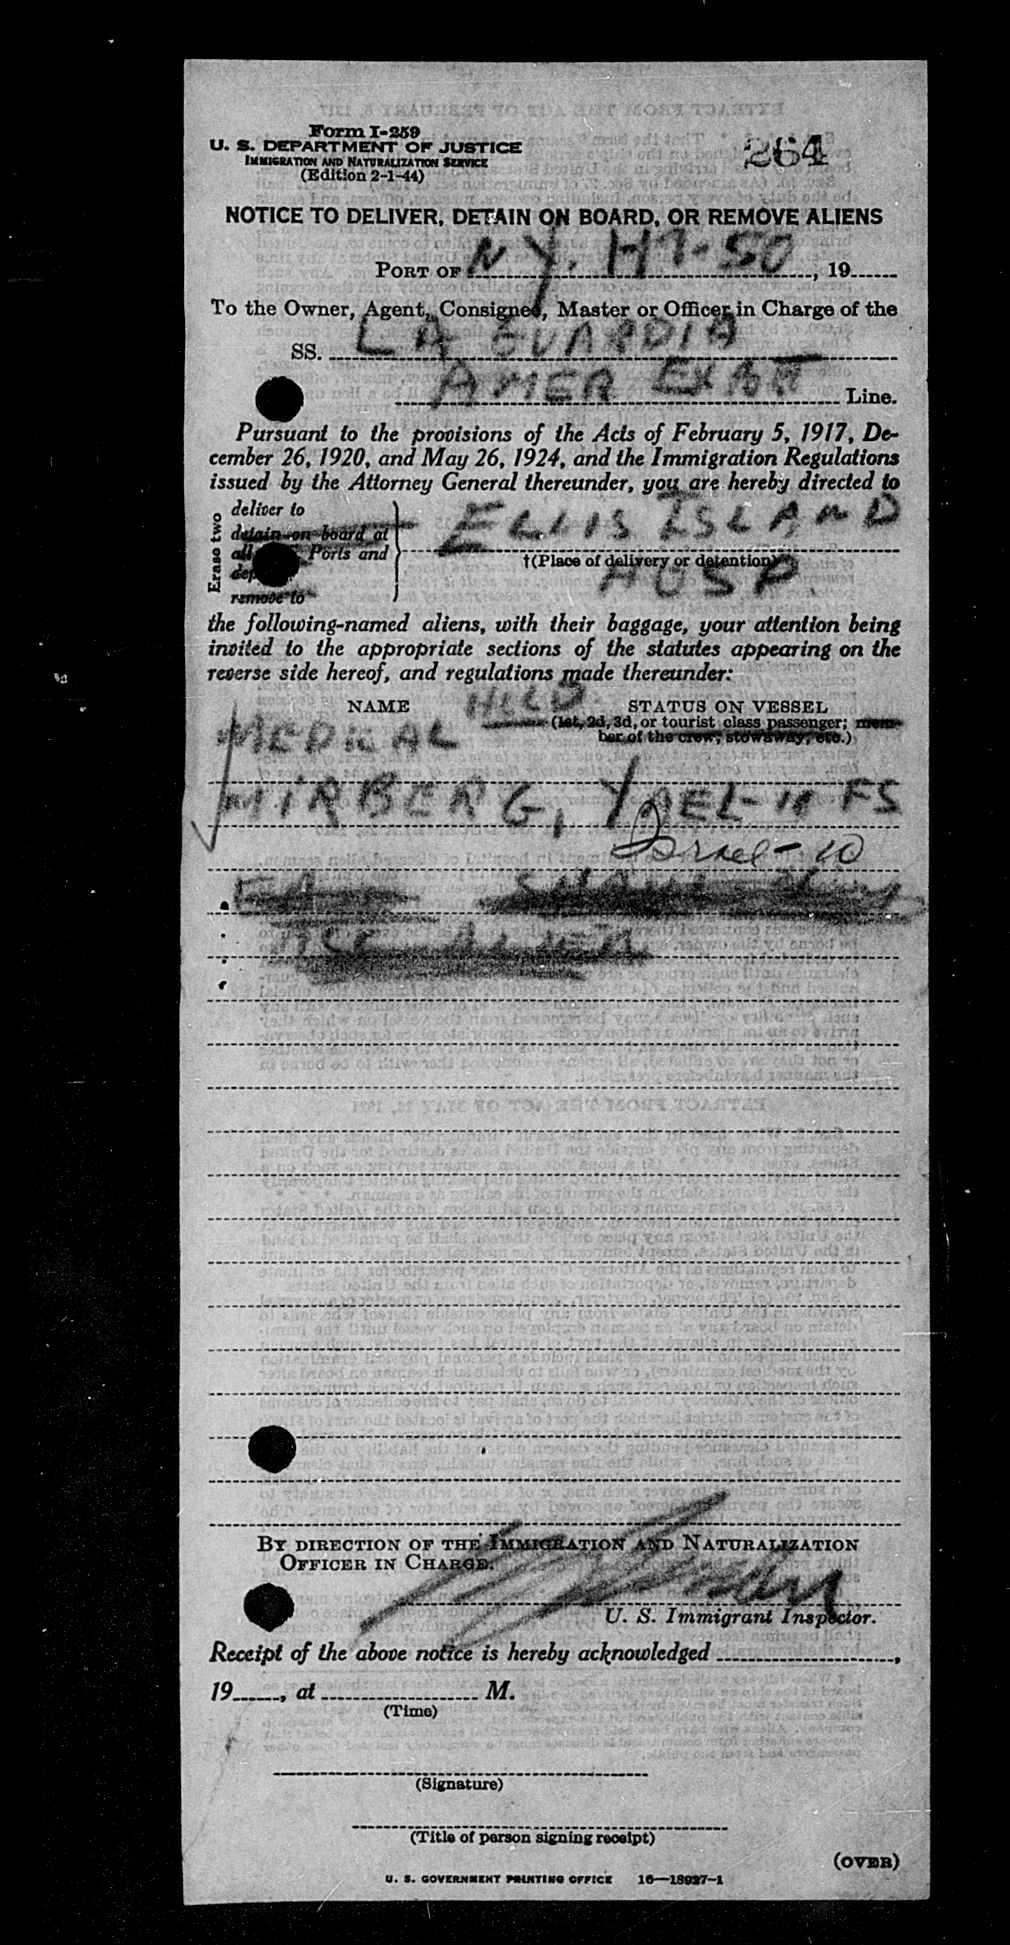 Form I-259
U. S. DEPARTMENT OF JUSTICE
264
IMMIGRATION AND NATURALIZATION SERVICE
(Edition 2-1-44)
NOTICE TO DELIVER, DETAIN ON BOARD, OR REMOVE ALIENS
PORT OF N Y. , 19
To the Owner, Agent, Consignee, Master or Officer in Charge of the
SS. LA GUARDIA
AMER EXPT Line.
Pursuant to the provisions of the Acts of February 5, 1917, De-
cember 26, 1920, and May 26, 1924, and the Immigration Regulations
issued by the Attorney General thereunder, you are hereby directed to
Erase two
deliver to
detain on board at
all Ports and
remove to
ELLIS ISLAND
†(Place of delivery or detention)
HOSP
the following-named aliens, with their baggage, your attention being
invited to the appropriate sections of the statutes appearing on the
reverse side hereof, and regulations made thereunder:
NAME HELD STATUS ON VESSEL
MEDICAL (1st, 2d, 3d, or tourist class passenger; mem-
ber of the crew, stowaway, etc.)
MIRBERG, YAEL-11 FS
Israel-10
BY DIRECTION OF THE IMMIGRATION AND NATURALIZATION
OFFICER IN CHARGE.
U. S. Immigrant Inspector.
Receipt of the above notice is hereby acknowledged ,
19 , at M.
(Time)
(Signature)
(Title of person signing receipt)
(OVER)
U. S. GOVERNMENT PRINTING OFFICE 16—18927-1